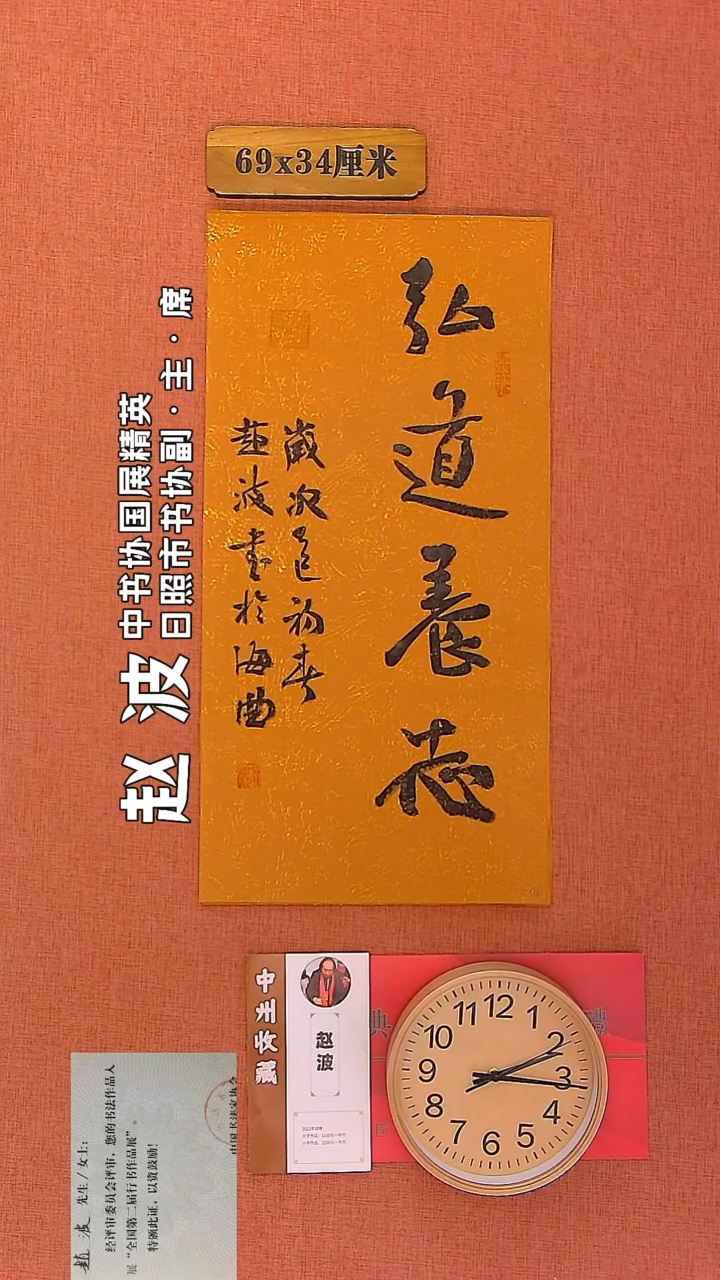 69x34厘米
弘道養志
歲次乙巳初春
趙波書於海曲
赵波
中书协国展精英
日照市书协副·主·席
中国书法家协会
趙波 先生/女士:
经评审委员会评审，您的书法作品入
展“全国第二届行书作品展”。
特颁此证，以资鼓励!
赵波
典
禮
12
1
2
3
4
5
6
7
8
9
10
11